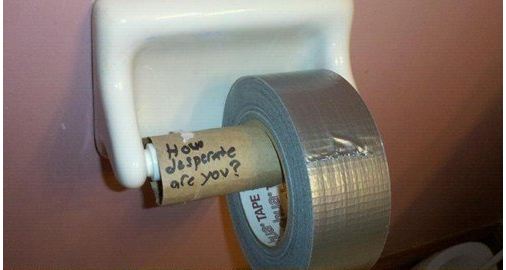 How
desperate
are you?
TAPE